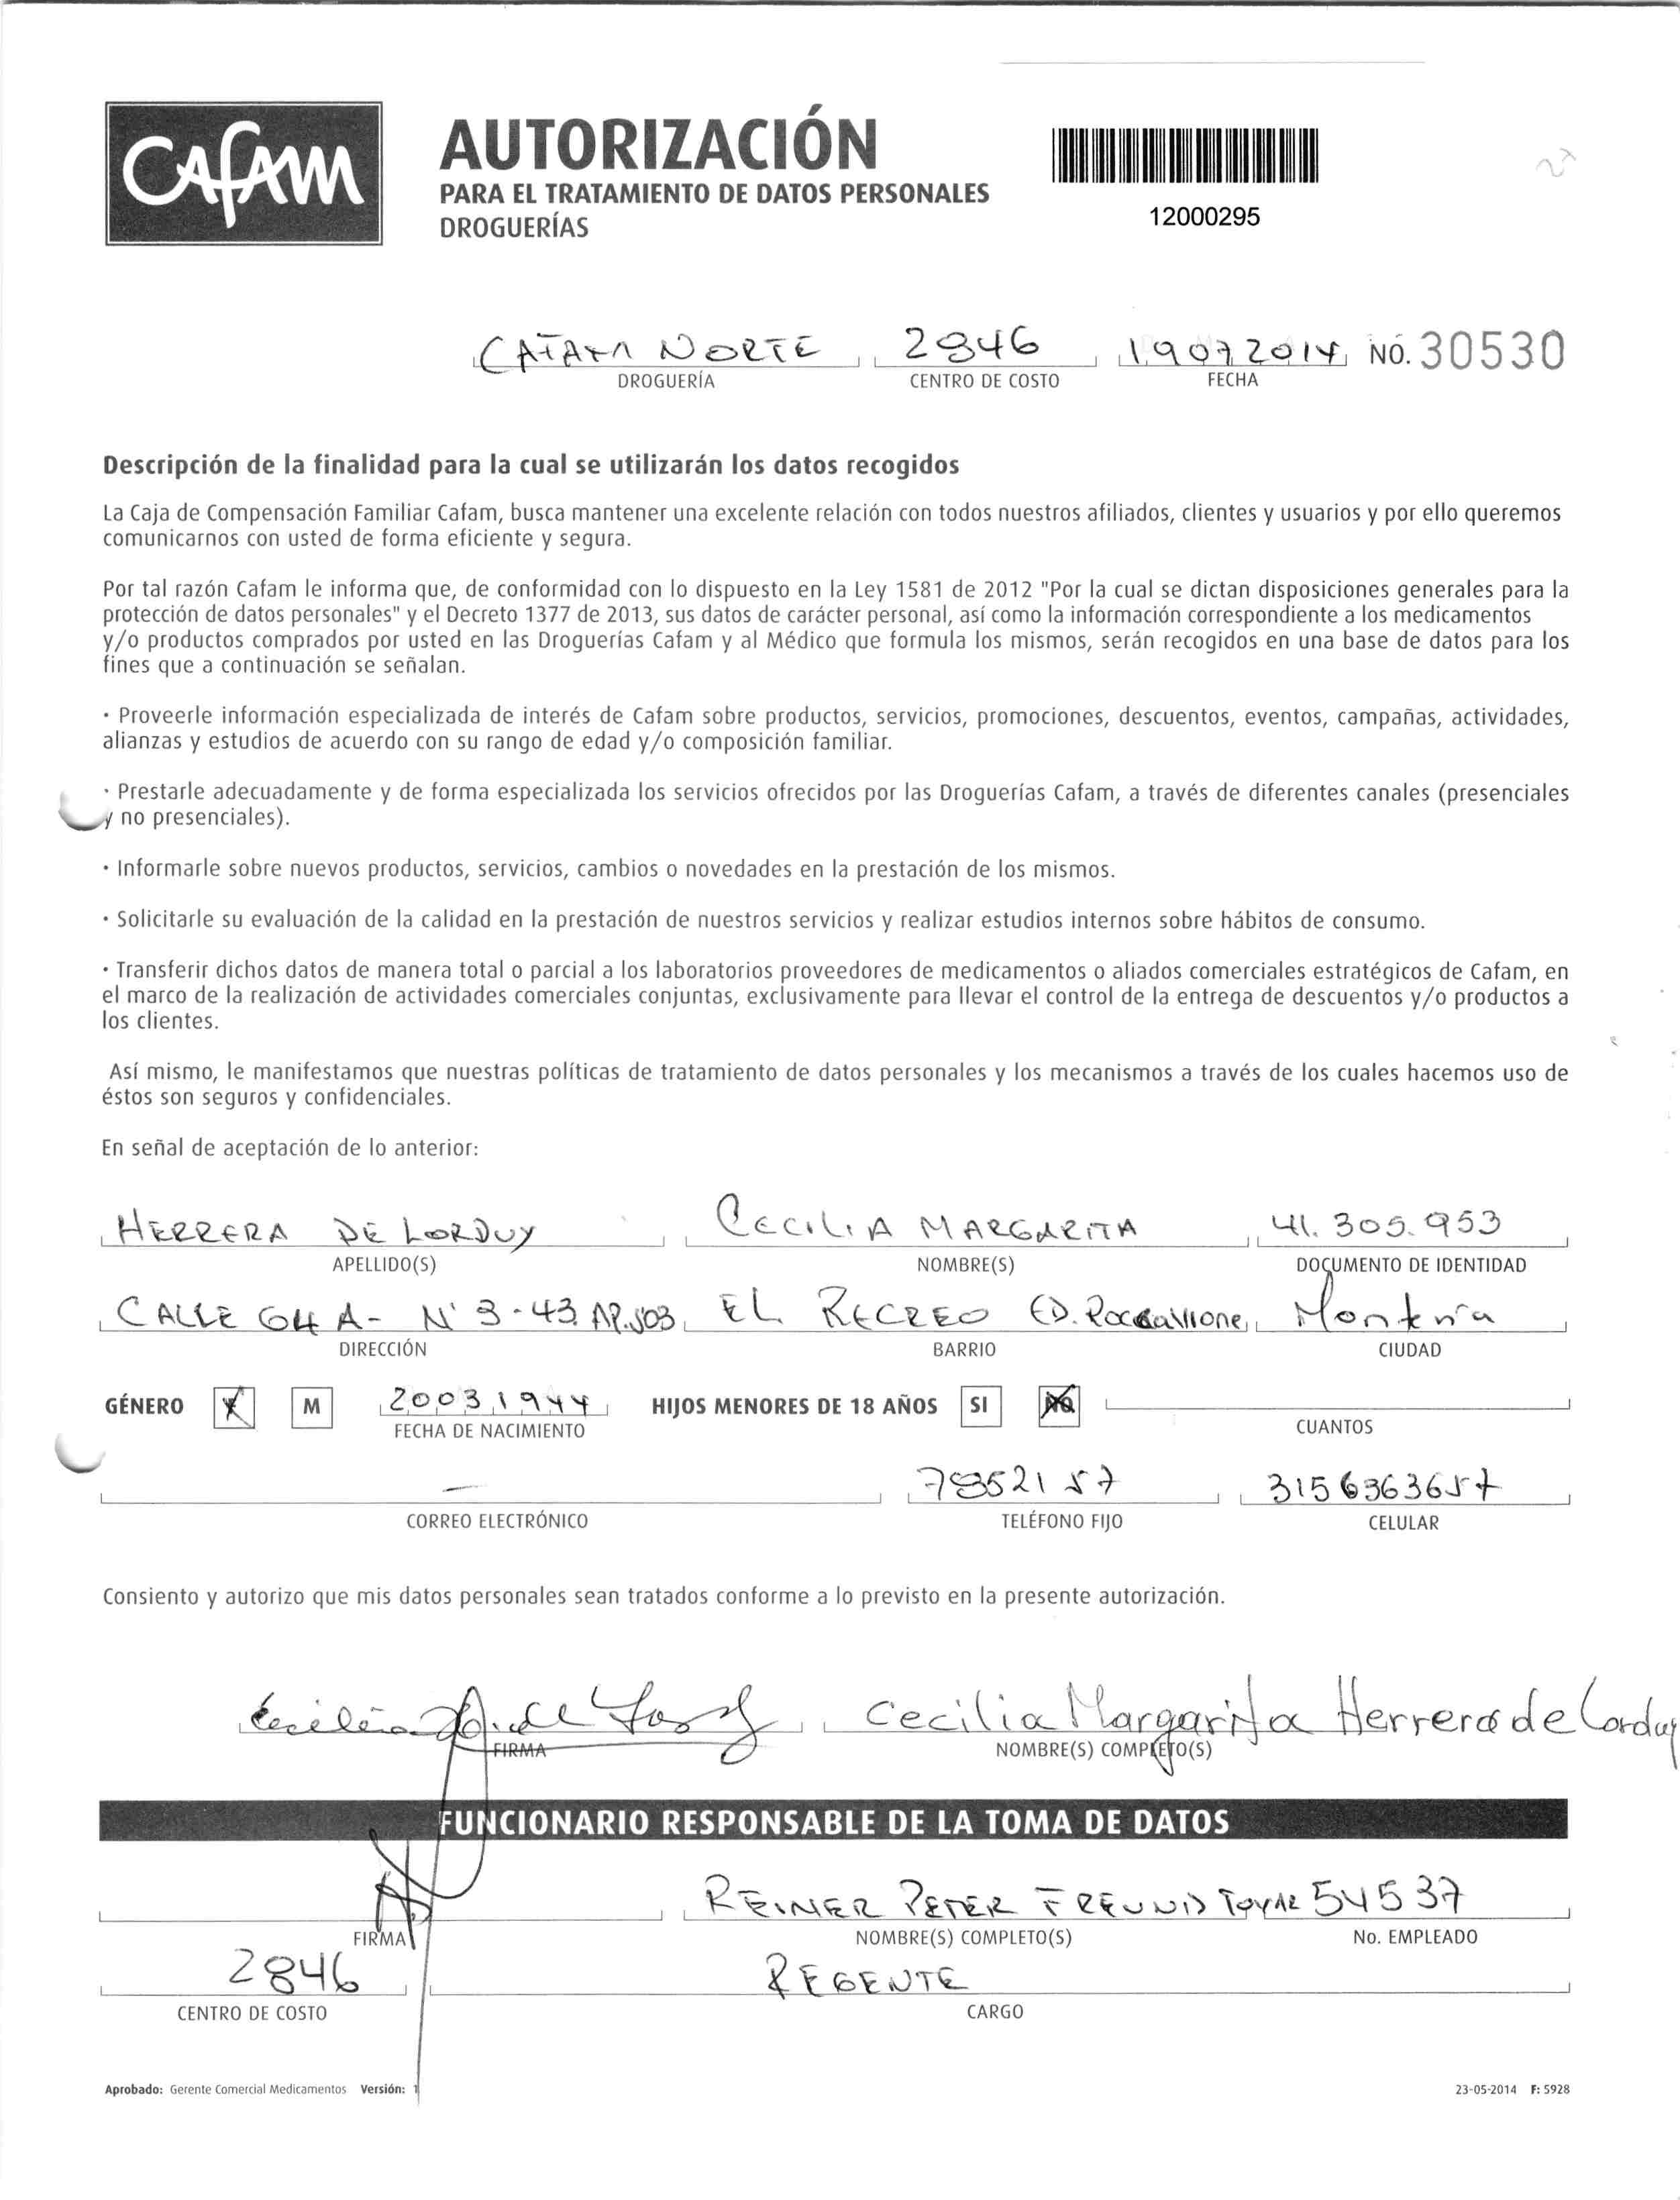 Cafam
AUTORIZACIÓN
PARA EL TRATAMIENTO DE DATOS PERSONALES
DROGUERÍAS
12000295
CAFAM NORTE 2846 19072014 NO. 30530
DROGUERÍA CENTRO DE COSTO FECHA
Descripción de la finalidad para la cual se utilizarán los datos recogidos
La Caja de Compensación Familiar Cafam, busca mantener una excelente relación con todos nuestros afiliados, clientes y usuarios y por ello queremos
comunicarnos con usted de forma eficiente y segura.
Por tal razón Cafam le informa que, de conformidad con lo dispuesto en la Ley 1581 de 2012 "Por la cual se dictan disposiciones generales para la
protección de datos personales" y el Decreto 1377 de 2013, sus datos de carácter personal, así como la información correspondiente a los medicamentos
y/o productos comprados por usted en las Droguerías Cafam y al Médico que formula los mismos, serán recogidos en una base de datos para los
fines que a continuación se señalan.
· Proveerle información especializada de interés de Cafam sobre productos, servicios, promociones, descuentos, eventos, campañas, actividades,
alianzas y estudios de acuerdo con su rango de edad y/o composición familiar.
· Prestarle adecuadamente y de forma especializada los servicios ofrecidos por las Droguerías Cafam, a través de diferentes canales (presenciales
y no presenciales).
· Informarle sobre nuevos productos, servicios, cambios o novedades en la prestación de los mismos.
· Solicitarle su evaluación de la calidad en la prestación de nuestros servicios y realizar estudios internos sobre hábitos de consumo.
· Transferir dichos datos de manera total o parcial a los laboratorios proveedores de medicamentos o aliados comerciales estratégicos de Cafam, en
el marco de la realización de actividades comerciales conjuntas, exclusivamente para llevar el control de la entrega de descuentos y/o productos a
los clientes.
Así mismo, le manifestamos que nuestras políticas de tratamiento de datos personales y los mecanismos a través de los cuales hacemos uso de
éstos son seguros y confidenciales.
En señal de aceptación de lo anterior:
HERRERA DE LORDUY CECILIA MARGARITA 41.305.953
APELLIDO(S) NOMBRE(S) DOCUMENTO DE IDENTIDAD
CALLE 64 A- N° 3-43 AP.503 EL RECREO ED. Montería
DIRECCIÓN BARRIO CIUDAD
GÉNERO M 20031944 HIJOS MENORES DE 18 AÑOS SI NO
FECHA DE NACIMIENTO CUANTOS
— 7852157 3156363657
CORREO ELECTRÓNICO TELÉFONO FIJO CELULAR
Consiento y autorizo que mis datos personales sean tratados conforme a lo previsto en la presente autorización.
Cecilia Margarita Herrera de Lorduy
FIRMA NOMBRE(S) COMPLETO(S)
FUNCIONARIO RESPONSABLE DE LA TOMA DE DATOS
REINER PETER FREUND 54537
FIRMA NOMBRE(S) COMPLETO(S) No. EMPLEADO
2846 REGENTE
CENTRO DE COSTO CARGO
Aprobado: Gerente Comercial Medicamentos Versión: 1 23-05-2014 F: 5928